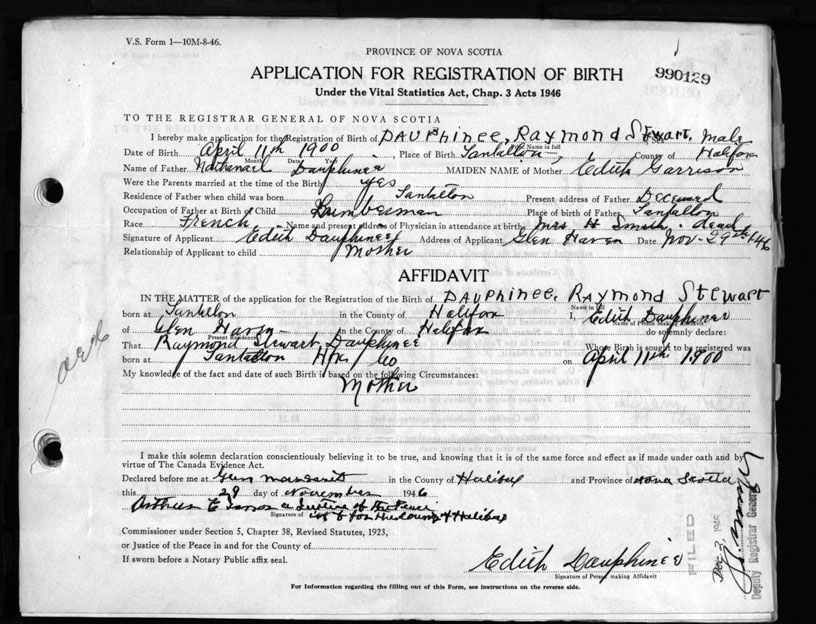 V.S. Form 1—10M-8-46.
PROVINCE OF NOVA SCOTIA
APPLICATION FOR REGISTRATION OF BIRTH
990129
Under the Vital Statistics Act, Chap. 3 Acts 1946
TO THE REGISTRAR GENERAL OF NOVA SCOTIA
I hereby make application for the Registration of Birth of DAUPHINEE, RAYMOND STEWART, male
Name in full
Date of Birth April 11th 1900, Place of Birth Tantallon, County of Halifax
Month Date Year
Name of Father Nathanael Dauphinee MAIDEN NAME of Mother Edith Garrison
Were the Parents married at the time of the Birth yes
Residence of Father when child was born Tantallon Present address of Father Deceased
Occupation of Father at Birth of Child Lumberman Place of birth of Father Tantallon
Race French Name and present address of Physician in attendance at birth Mrs H Smith - dead
Signature of Applicant Edith Dauphinee Address of Applicant Glen Haven Date Nov-29th/46
Relationship of Applicant to child Mother
AFFIDAVIT
IN THE MATTER of the application for the Registration of the Birth of DAUPHINEE, RAYMOND STEWART
Name in full
born at Tantallon in the County of Halifax I, Edith Dauphinee
Name of Person Making Affidavit
of Glen Haven in the County of Halifax do solemnly declare:
Present Residence
That Raymond Stewart Dauphinee Whose Birth is sought to be registered was
born at Tantallon Hfx Co on April 11th 1900
My knowledge of the fact and date of such Birth is based on the following Circumstances:
Mother
I make this solemn declaration conscientiously believing it to be true, and knowing that it is of the same force and effect as if made under oath and by
virtue of The Canada Evidence Act.
Declared before me at Glen Margaret in the County of Halifax and Province of Nova Scotia
this 29 day of November 1946
a Justice of the Peace
Signature of
Commissioner under Section 5, Chapter 38, Revised Statutes, 1923,
or Justice of the Peace in and for the County of
If sworn before a Notary Public affix seal.
Edith Dauphinee
Signature of Person making Affidavit
For Information regarding the filling out of this Form, see instructions on the reverse side.
FILED
Dec 2, 1946
Deputy Registrar General